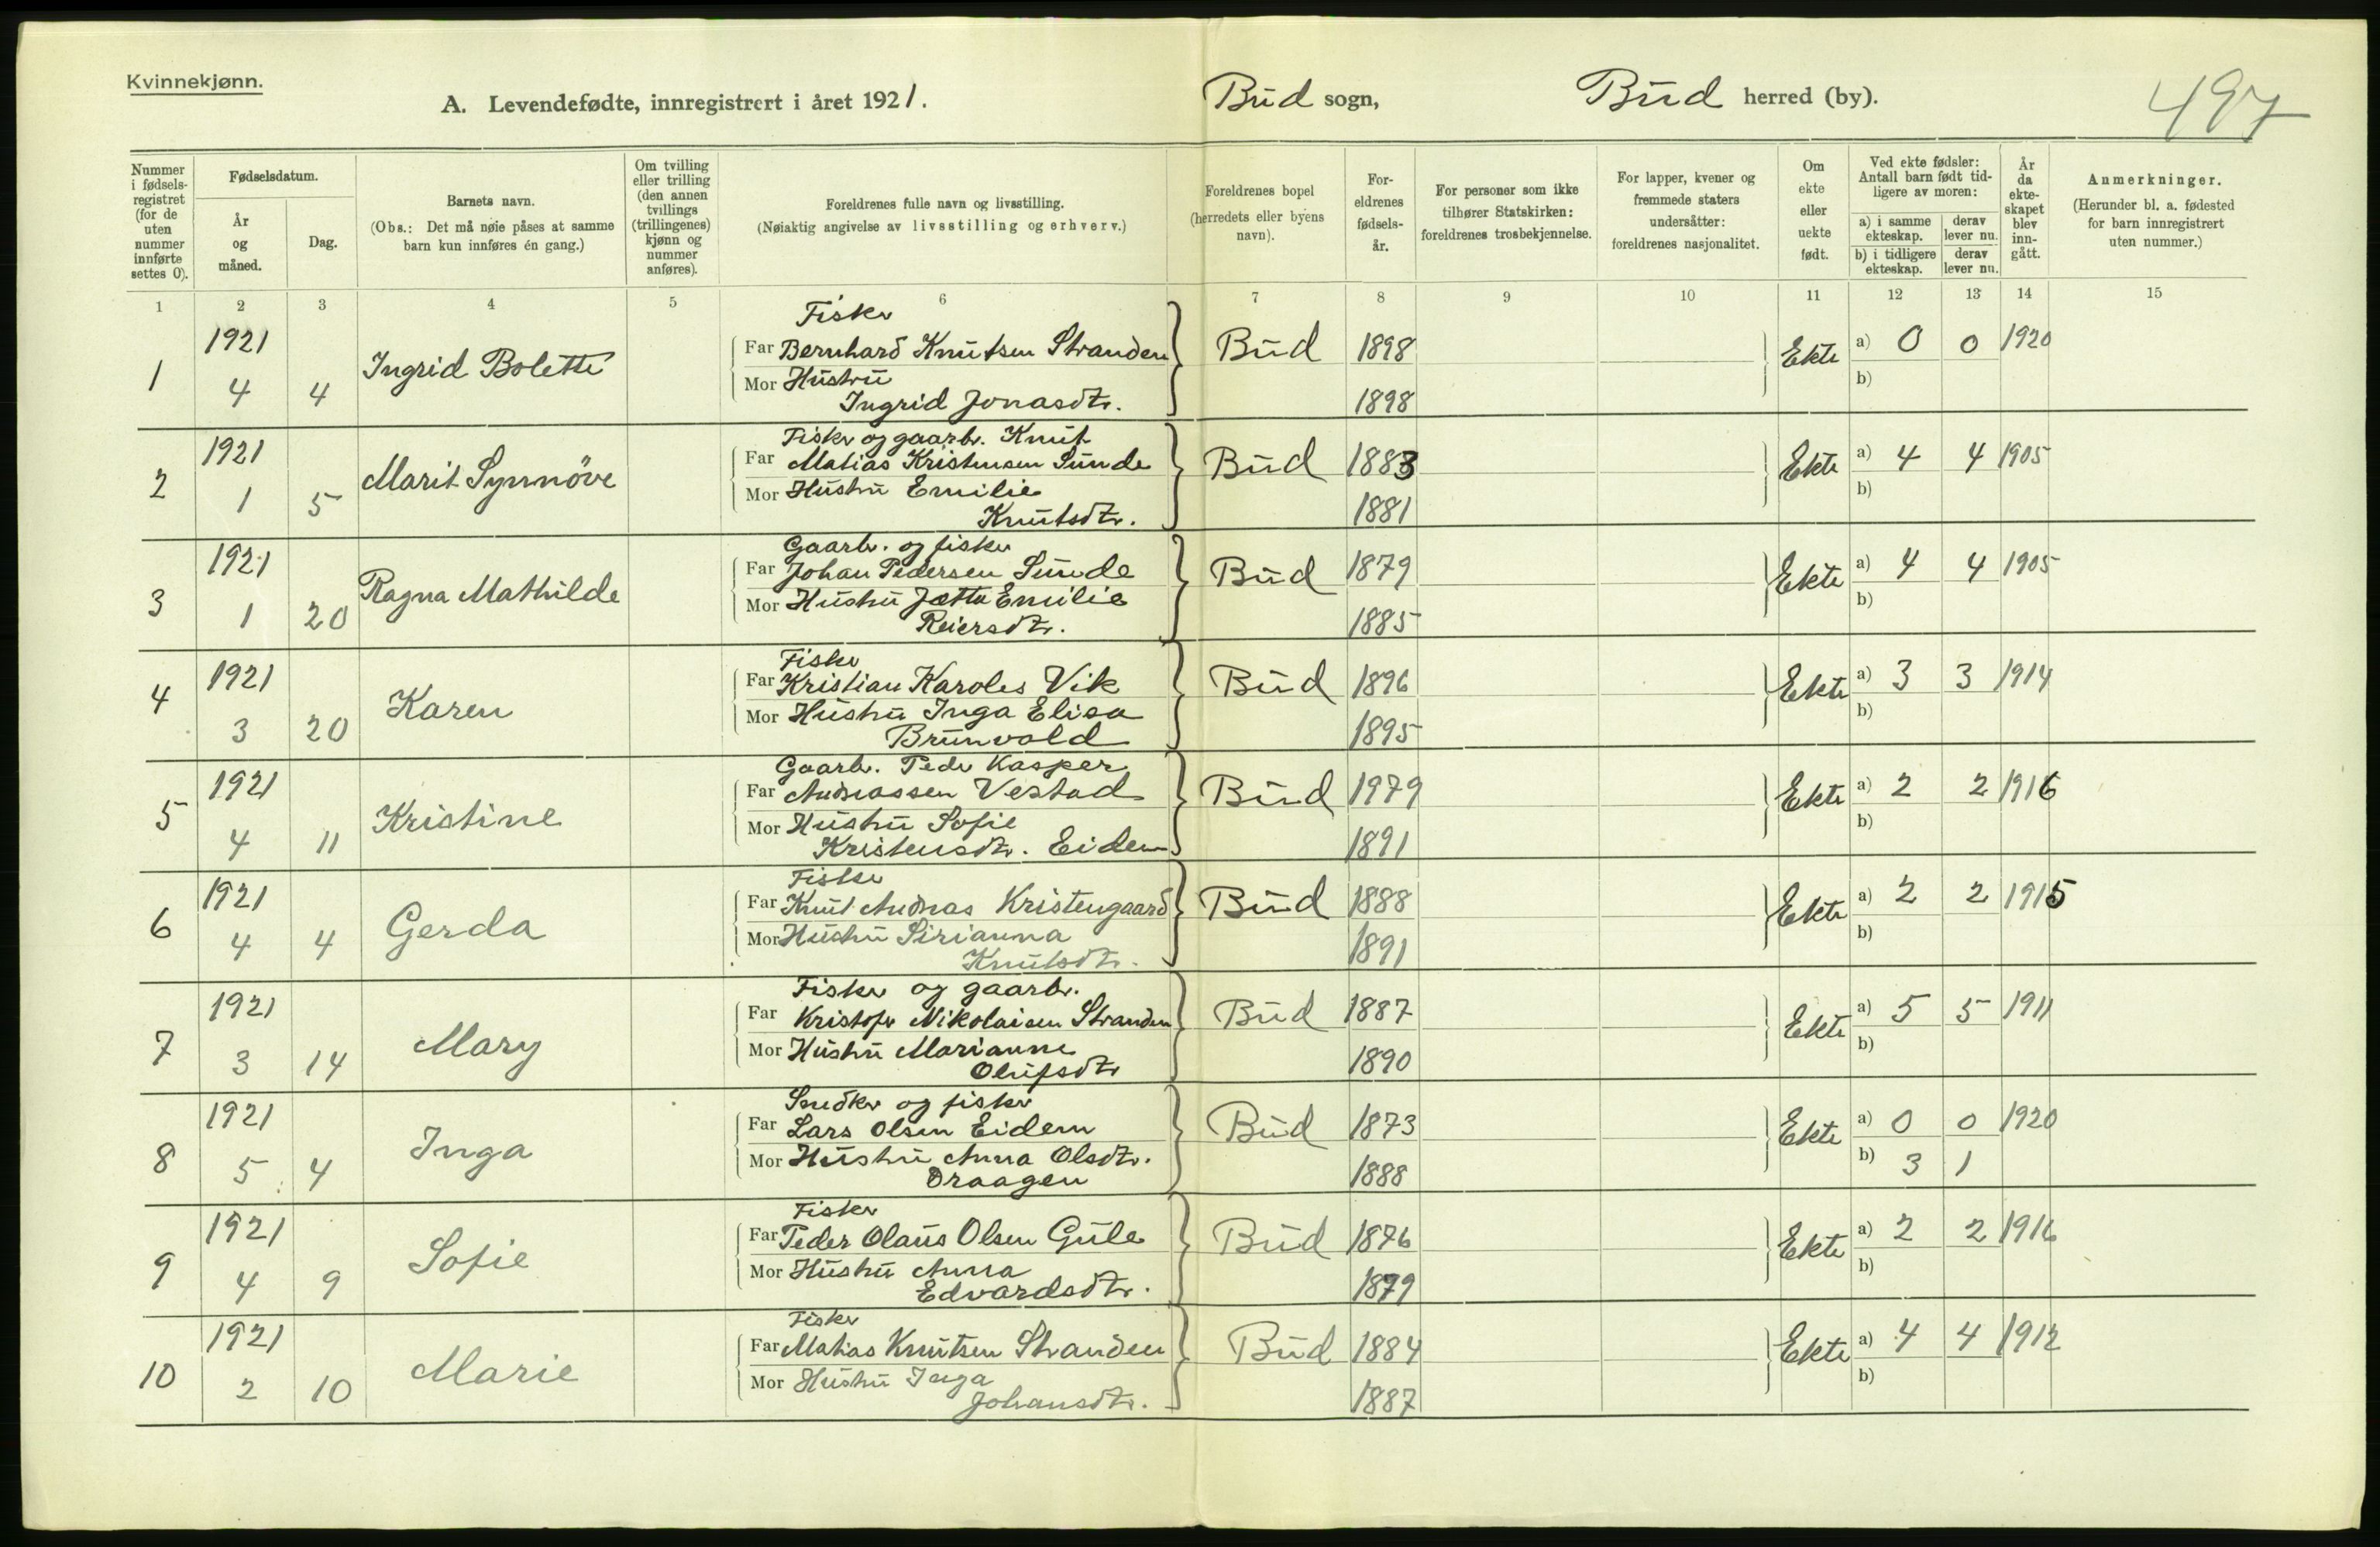 Kvinnekjønn.
A. Levendefødte, innregistrert i året 1921. Bud sogn, Bud herred (by). 497
Nummer i fødselsregistret (for de uten nummer innførte settes 0).
Fødselsdatum.
År og måned.
Dag.
Barnets navn.
(Obs.: Det må nøie påses at samme barn kun innføres én gang.)
Om tvilling eller trilling (den annen tvillings (trillingenes) kjønn og nummer anføres).
Foreldrenes fulle navn og livsstilling.
(Nøiaktig angivelse av livsstilling og erhverv.)
Foreldrenes bopel (herredets eller byens navn).
Foreldrenes fødselsår.
For personer som ikke tilhører Statskirken: foreldrenes trosbekjennelse.
For lapper, kvener og fremmede staters undersåtter: foreldrenes nasjonalitet.
Om ekte eller uekte født.
Ved ekte fødsler: Antall barn født tidligere av moren:
a) i samme ekteskap. derav lever nu.
b) i tidligere ekteskap. derav lever nu.
År da ekteskapet blev inngått.
Anmerkninger.
(Herunder bl. a. fødested for barn innregistrert uten nummer.)
1 2 3 4 5 6 7 8 9 10 11 12 13 14 15
Fisker
1 1921 4 4 Ingrid Bolette Far Bernhard Knutsen Stranden Bud 1898 Ekte a) 0 0 1920
Mor Hustru b)
Ingrid Jonasdtr. 1898
Fisker og gaarbr. Knut
2 1921 1 5 Marit Synnöve Far Matias Kristensen Sunde Bud 1883 Ekte a) 4 4 1905
Mor Hustru Emilie b)
Knutsdtr. 1881
Gaarbr. og fisker
3 1921 1 20 Ragna Mathilde Far Johan Pedersen Sunde Bud 1879 Ekte a) 4 4 1905
Mor Hustru Jetta Emilie b)
Reiersdtr. 1885
Fisker
4 1921 3 20 Karen Far Kristian Karoles Vik Bud 1896 Ekte a) 3 3 1914
Mor Hustru Inga Elisa b)
Brunvold 1895
Gaarbr. Peder Kasper
5 1921 4 11 Kristine Far Andreassen Vestad Bud 1979 Ekte a) 2 2 1916
Mor Hustru Sofie b)
Kristensdtr. Eidem 1891
Fisker
6 1921 4 4 Gerda Far Knut Andreas Kristengaard Bud 1888 Ekte a) 2 2 1915
Mor Hustru Sirianna b)
Knutsdtr. 1891
Fisker og gaarbr.
7 1921 3 14 Mary Far Kristofer Nikolaisen Stranden Bud 1887 Ekte a) 5 5 1911
Mor Hustru Marianne b)
Olufsdtr 1890
Snedker og fisker
8 1921 5 4 Inga Far Lars Olsen Eidem Bud 1873 Ekte a) 0 0 1920
Mor Hustru Anna Olsdtr. b) 3 1
Draagen 1888
Fisker
9 1921 4 9 Sofie Far Peder Olaus Olsen Gule Bud 1876 Ekte a) 2 2 1916
Mor Hustru Anna b)
Edvardsdtr. 1879
Fisker
10 1921 2 10 Marie Far Matias Knutsen Stranden Bud 1884 Ekte a) 4 4 1912
Mor Hustru Inga b)
Johansdtr. 1887